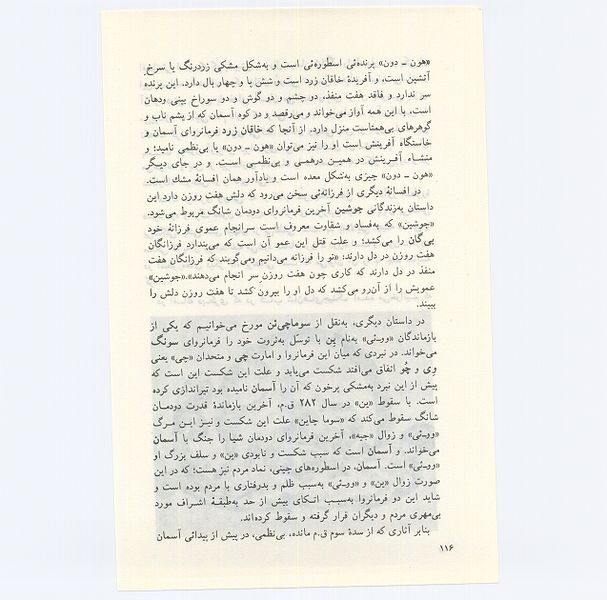 «هون ـ دون» پرنده‌ئی اسطوره‌ئی است و به‌شکل مشکی زردرنگ یا سرخ
آتشین است، و آفریدهٔ خاقان زرد است و شش پا و چهار بال دارد، این پرنده
سر ندارد و فاقد هفت منفذ، دو چشم و دو گوش و دو سوراخ بینی ودهان
است، با این همه آواز می‌خواند و می‌رقصد و در کوه آسمان که از یشم ناب و
گوهرهای بی‌همتاست منزل دارد. از آنجا که خاقان زرد فرمانروای آسمان و
خاستگاه آفرینش است او را نیز می‌توان «هون ـ دون» یا بی‌نظمی نامید؛ و
منشاء آفرینش در همین درهمی و بی‌نظمی است. و در جای دیگر
«هون ـ دون» چیزی به‌شکل معده است و یادآور همان افسانهٔ مشك است.
در افسانهٔ دیگری از فرزانه‌ئی سخن می‌رود که دلش هفت روزن دارد این
داستان به‌زندگانی چوشین آخرین فرمانروای دودمان شانگ مربوط می‌شود.
«چوشین» که به‌فساد و شقاوت معروف است سرانجام عموی فرزانهٔ خود
بی‌گان را می‌کشد؛ و علت قتل این عمو آن است که می‌پندارد فرزانگان
هفت روزن در دل دارند: «تو را فرزانه می‌دانیم ومی‌گویند که فرزانگان هفت
منفذ در دل دارند که کاری چون هفت روزن سر انجام می‌دهند».«چوشین»
عمویش را از آن‌رو می‌کشد که دل او را بیرون کشد تا هفت روزن دلش را
ببیند.
در داستان دیگری، به‌نقل از سوماچی‌ئن مورخ می‌خوانیم که یکی از
بازماندگان «وو‌ـ‌ئی» به‌نام ین با توسّل به‌ثروت خود را فرمانروای سونگ
می‌خواند. در نبردی که میان این فرمانروا و امارت چی و متحدان «چی» یعنی
وی و چُو اتفاق می‌افتد شکست می‌یابد و علت این شکست این است که
پیش از این نبرد به‌مشکی پرخون که آن را آسمان نامیده بود تیراندازی کرده
است. با سقوط «ین» در سال ۲۸۲ ق.م، آخرین بازماندهٔ قدرت دودمان
شانگ سقوط می‌کند که «سوما چاین» علت این شکست و نیز این مرگ
«وو‌ـ‌ئی» و زوال «جیه»، آخرین فرمانروای دودمان شیا را جنگ با آسمان
می‌خواند. و آسمان است که سبب شکست و نابودی «ین» و سلف بزرگ او
«وو‌ـ‌ئی» است. آسمان، در اسطوره‌های چینی، نماد مردم نیز هست؛ که در این
صورت زوال «ین» و «وو‌ـ‌ئی» به‌سبب ظلم و بدرفتاری با مردم بوده است و
شاید این دو فرمانروا به‌سبب اتکای بیش از حد به‌طبقهٔ اشراف مورد
بی‌مهری مردم و دیگران قرار گرفته و سقوط کرده‌اند.
بنابر آثاری که از سدهٔ سوم ق.م مانده، بی‌نظمی، در پیش از پیدائی آسمان
۱۱۶